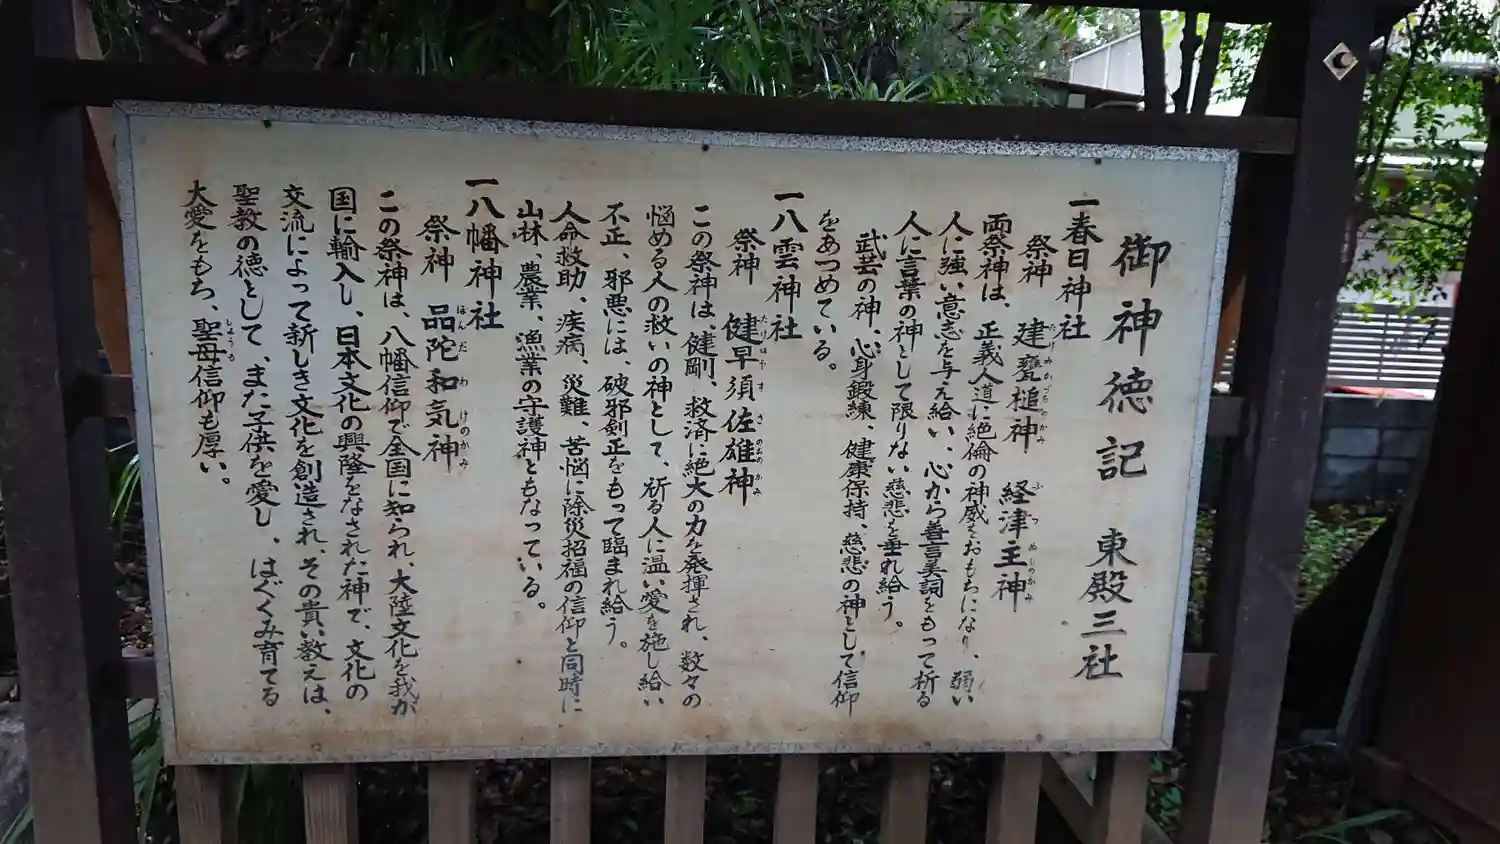 御神徳記 東殿三社
一春日神社
祭神 建甕槌神 経津主神
両祭神は、正義人道に絶倫の神威をおもちになり、弱い
人に強い意志を与え給い、心から善言美詞をもって祈る
人に言葉の神として限りない慈悲を垂れ給う。
武芸の神、心身鍛練、健康保持、慈悲の神として信仰
をあつめている。
一八雲神社
祭神 健早須佐雄神
この祭神は、健剛、救済に絶大の力を発揮され、数々の
悩める人の救いの神として、祈る人に温い愛を施し給い
不正、邪悪には、破邪剣正をもって臨まれ給う。
人命救助、疾病、災難、苦悩に除災招福の信仰と同時に
山林、農業、漁業の守護神ともなっている。
一八幡神社
祭神 品陀和気神
この祭神は、八幡信仰で全国に知られ、大陸文化を我が
国に輸入し、日本文化の興隆をなされた神で、文化の
交流によって新しき文化を創造され、その貴い教えは、
聖教の徳として、また子供を愛し、はぐくみ育てる
大愛をもち、聖母信仰も厚い。